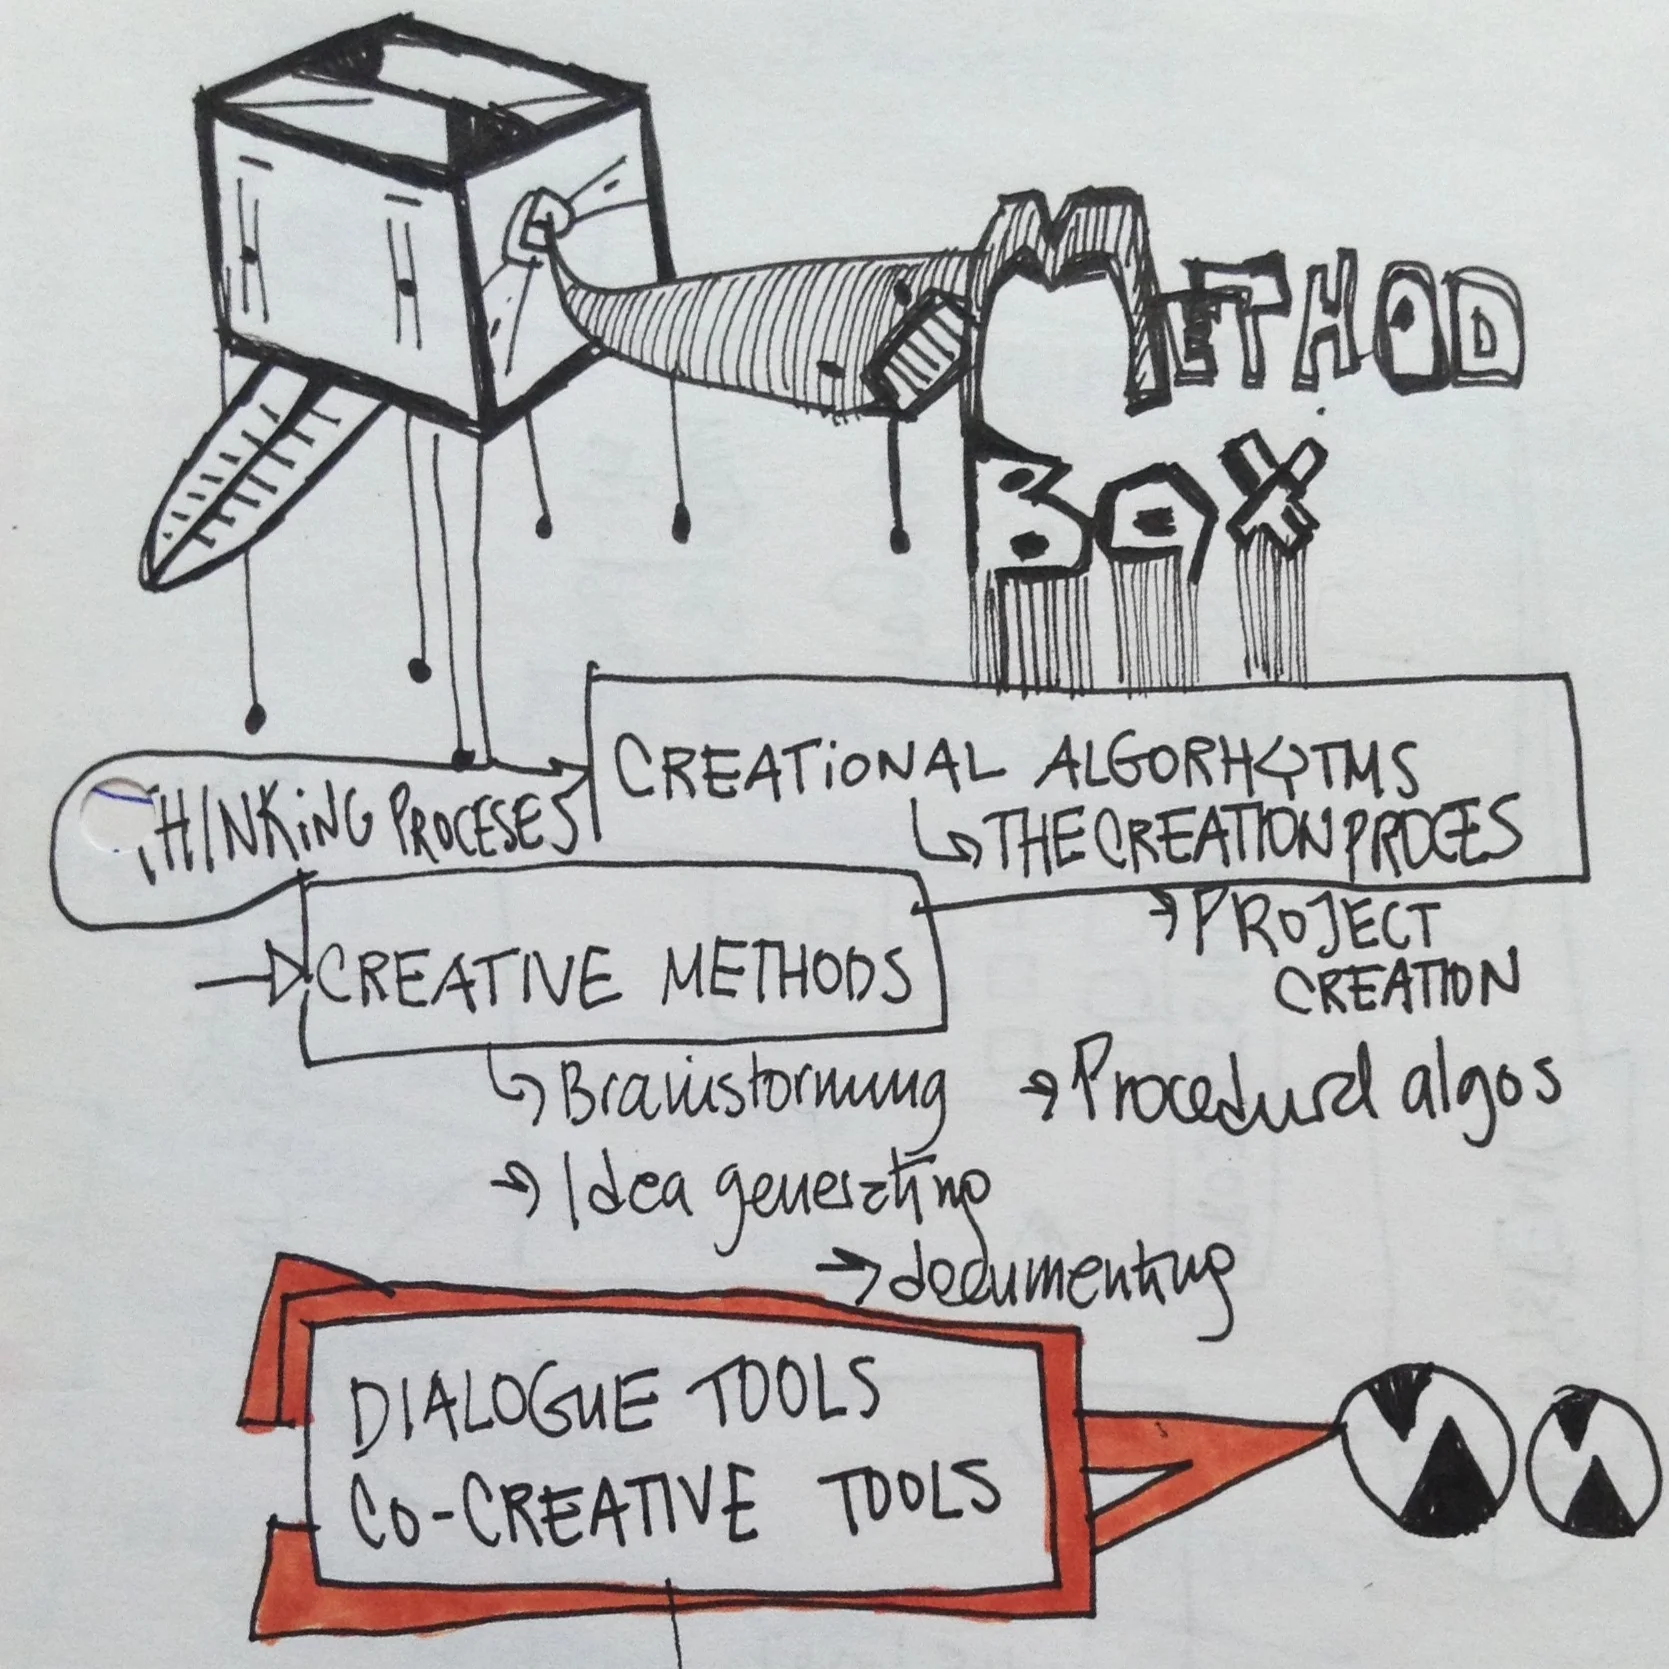 METHOD
BOX
THINKING PROCESES
CREATiONAL ALGORHYTMS
THE CREATION PROCES
PROJECT
CREATION
CREATIVE METHODS
Brainstorming
Procedural algos
Idea generating
documenting
DIALOGUE TOOLS
CO-CREATIVE TOOLS